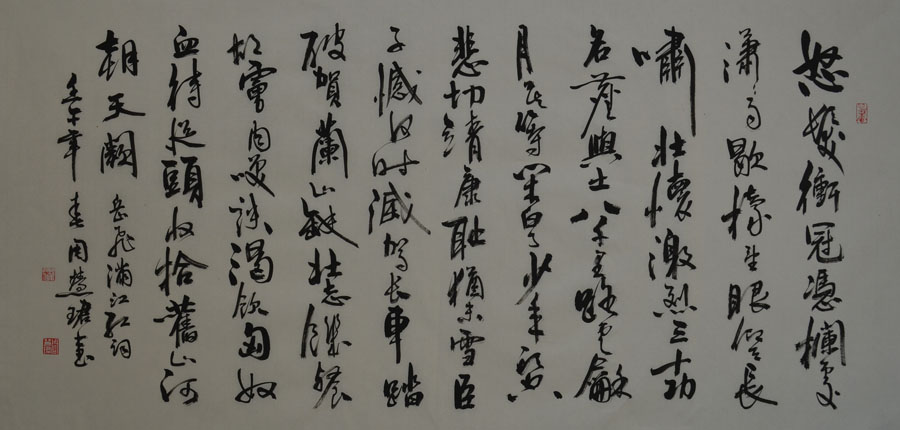 怒髮衝冠憑欄處
瀟々雨歇擡望眼仰天長
嘯壯懷激烈三十功
名塵與土八千里路雲龢
月莫等閑白了少年頭空
悲切靖康耻猶未雪臣
子憾何時滅駕長車踏
破賀蘭山缺壯志饑餐
胡虜肉笑談渴飲匈奴
血待從頭收拾舊山河
朝天闕 岳飛滿江紅詞
壬午年春周慧珺書